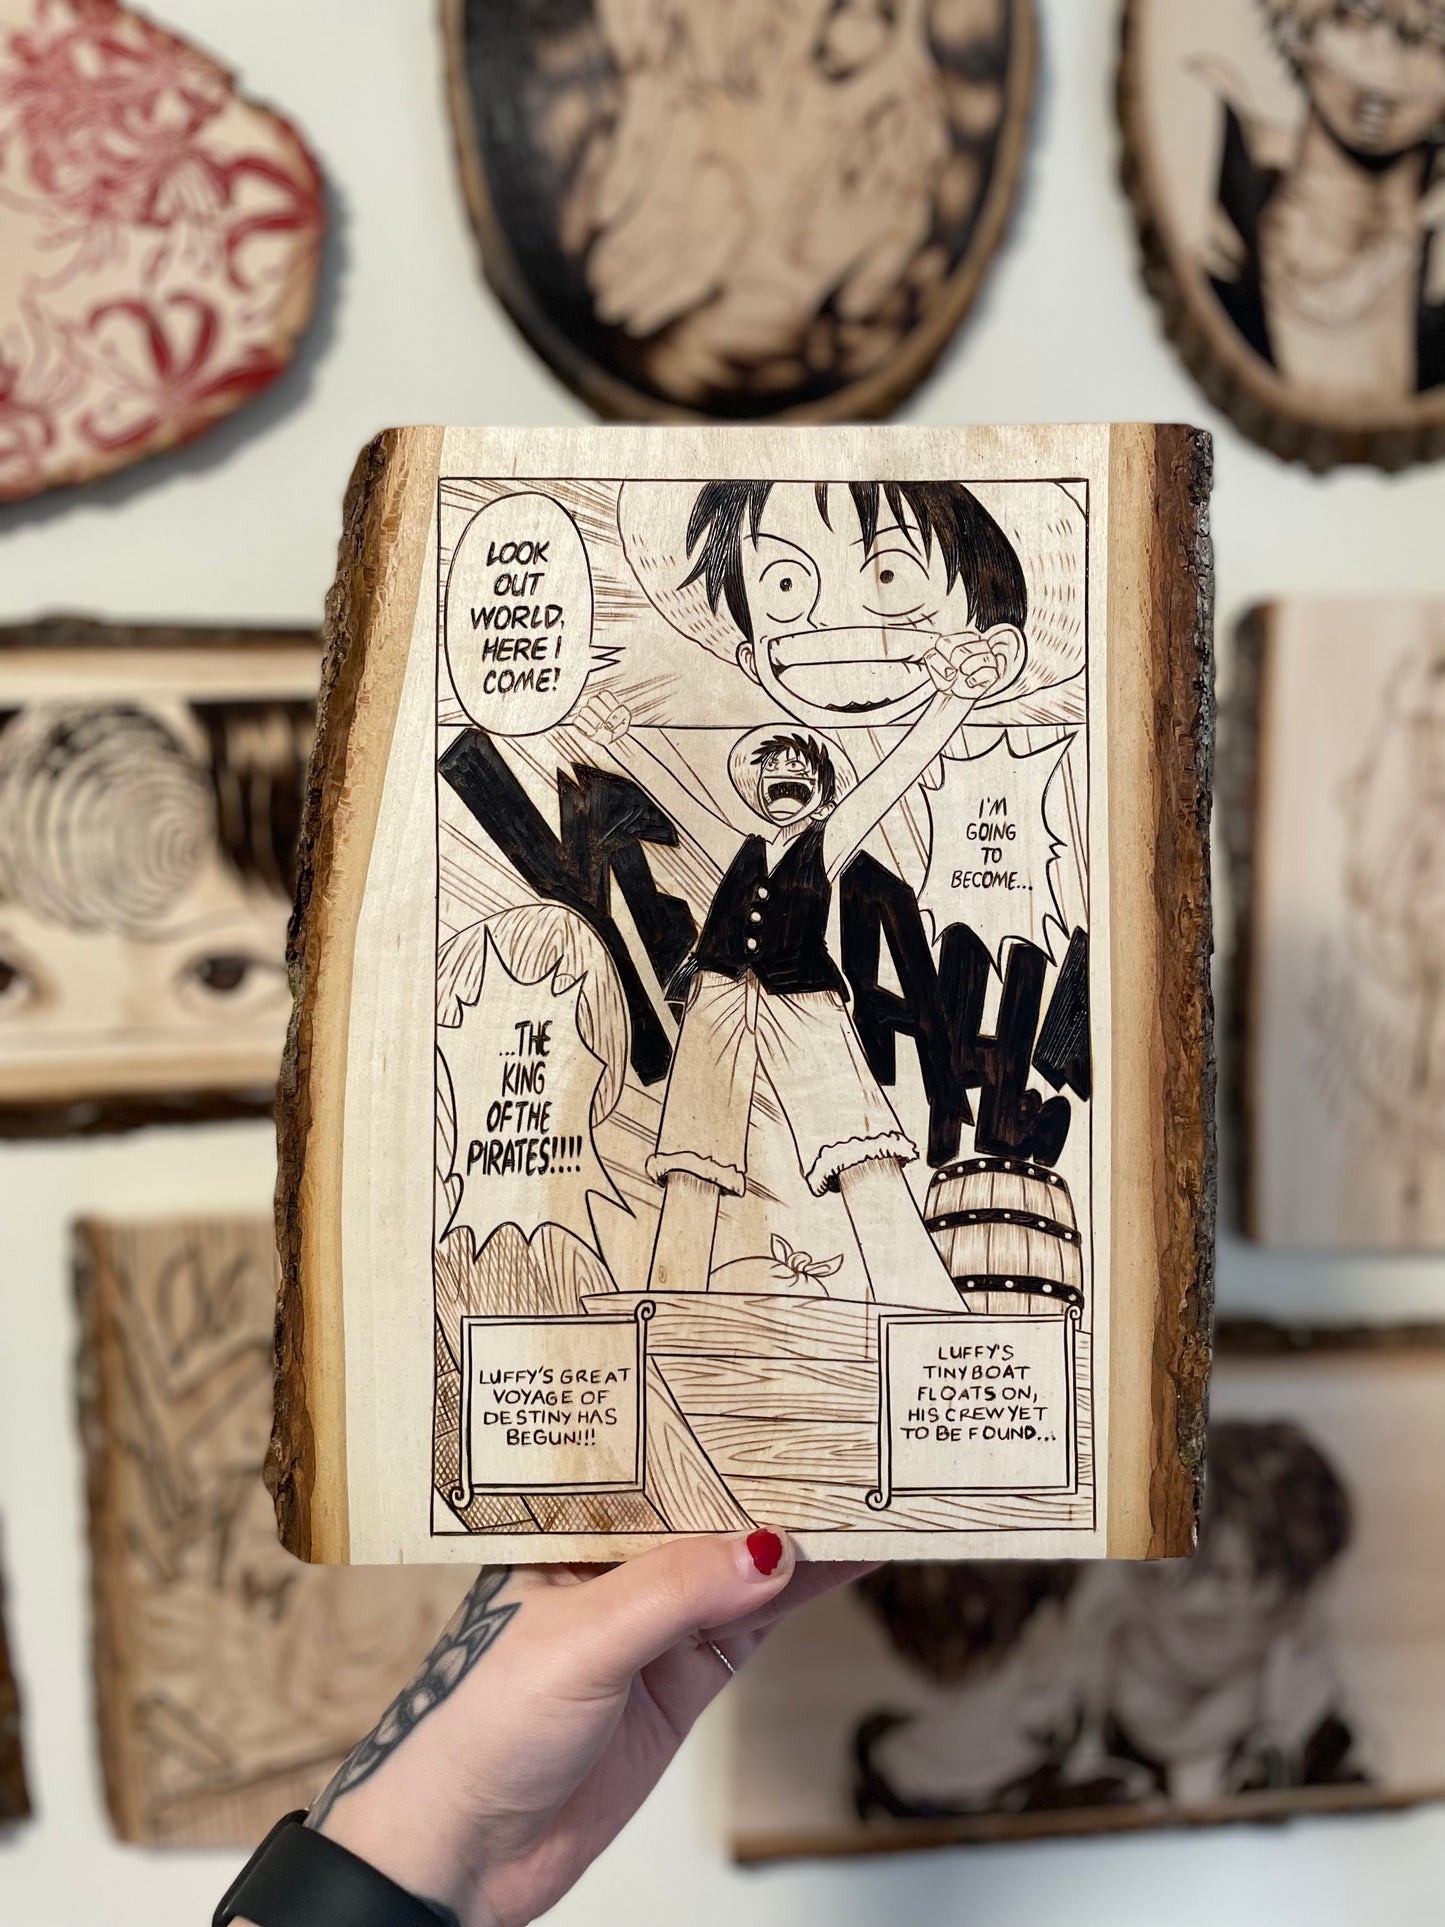 LOOK
OUT
WORLD,
HERE I
COME!
YEAH!!
I'M
GOING
TO
BECOME...
...THE
KING
OF THE
PIRATES!!!!
LUFFY'S GREAT
VOYAGE OF
DESTINY HAS
BEGUN!!!
LUFFY'S
TINY BOAT
FLOATS ON,
HIS CREW YET
TO BE FOUND...